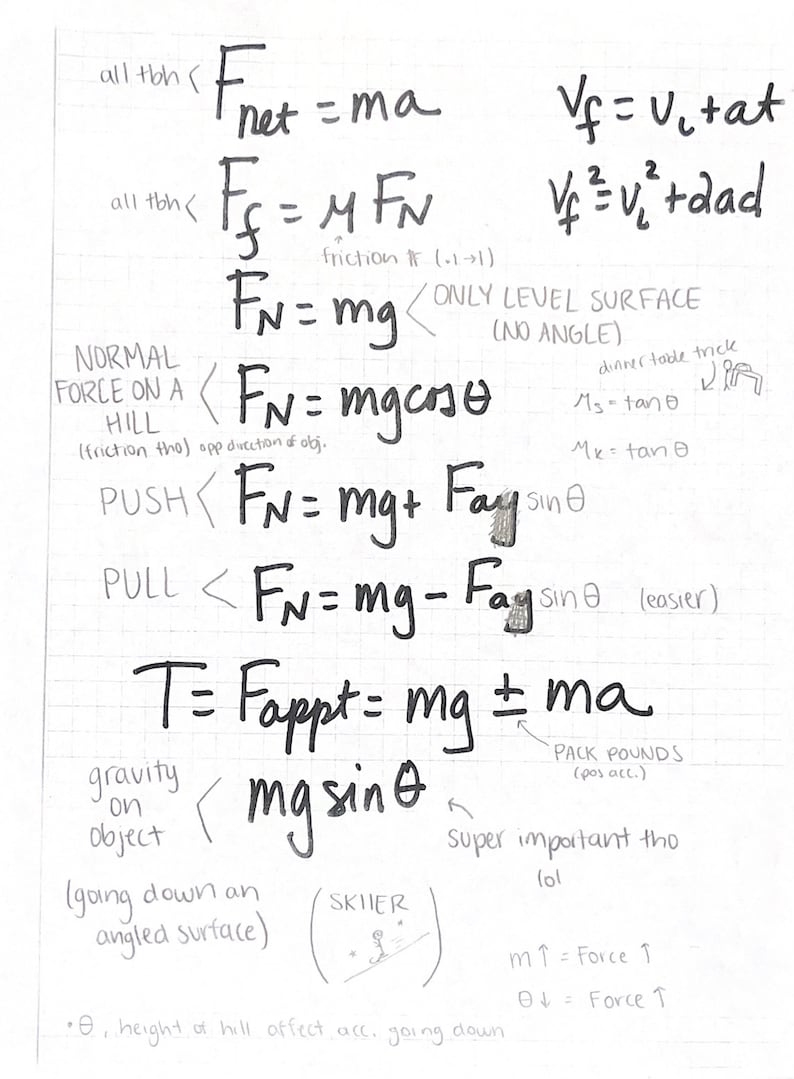 all tbh < Fnet = ma
Vf = Vi + at
all tbh < Ff = μ FN
Vf² = Vi² + 2ad
friction # (.1→1)
FN = mg < ONLY LEVEL SURFACE
(NO ANGLE)
NORMAL
FORCE ON A
HILL
< FN = mgcosθ
(friction tho) opp direction of obj.
dinner table trick
μs = tanθ
μk = tanθ
PUSH < FN = mg + Fay sinθ
PULL < FN = mg − Fay sinθ (easier)
T = Fappt = mg ± ma
PACK POUNDS
(pos acc.)
gravity
on
object
< mg sinθ
super important tho
lol
(going down an
angled surface)
(SKIIER)
m↑ = Force ↑
θ↓ = Force ↑
• θ, height of hill affect acc. going down